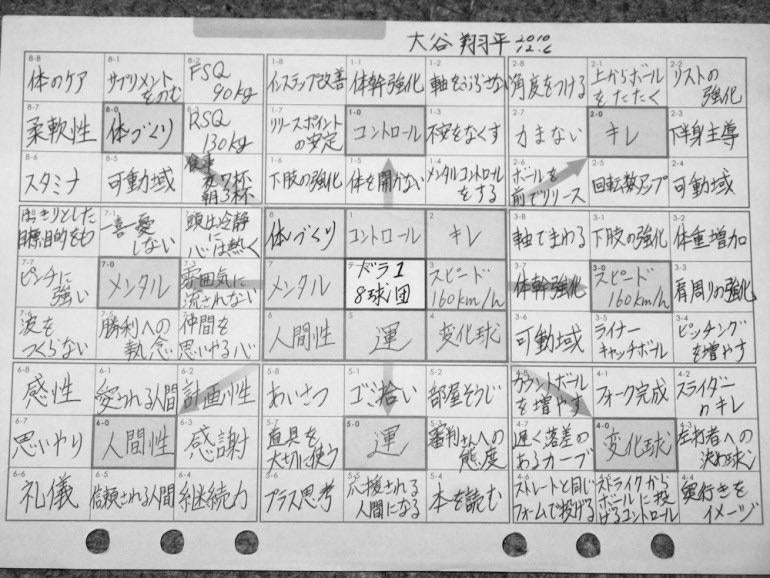 大谷 翔平 2010
12.6
8-8
体のケア
8-1
サプリメント
をのむ
8-2
FSQ
90kg
8-7
柔軟性
8-0
体づくり
8-3
RSQ
130kg
8-6
スタミナ
8-5
可動域
食事
夜7杯
朝3杯
1-8
インステップ改善
1-1
体幹強化
1-2
軸をぶらさない
1-7
リリースポイント
の安定
1-0
コントロール
1-3
不安をなくす
1-6
下肢の強化
1-5
体を開かない
1-4
メンタルコントロール
をする
2-8
角度をつける
2-1
上からボール
をたたく
2-2
リストの
強化
2-7
力まない
2-0
キレ
2-3
下半身主導
2-6
ボールを
前でリリース
2-5
回転数アップ
2-4
可動域
はっきりとした
目標、目的をもつ
7-1
一喜一憂
しない
頭は冷静
に心は熱く
7-7
ピンチに
強い
7-0
メンタル
7-3
雰囲気に
流されない
7-6
波を
つくらない
7-5
勝利への
執念
7-4
仲間を
思いやる心
8
体づくり
1
コントロール
2
キレ
7
メンタル
ドラ1
8球団
3
スピード
160km/h
6
人間性
5
運
4
変化球
3-8
軸でまわる
3-1
下肢の強化
3-2
体重増加
3-7
体幹強化
3-0
スピード
160km/h
3-3
肩周りの強化
3-6
可動域
3-5
ライナー
キャッチボール
3-4
ピッチング
を増やす
6-8
感性
6-1
愛される人間
6-2
計画性
6-7
思いやり
6-0
人間性
6-3
感謝
6-6
礼儀
6-5
信頼される人間
6-4
継続力
5-8
あいさつ
5-1
ゴミ拾い
5-2
部屋そうじ
5-7
道具を
大切に使う
5-0
運
5-3
審判さんへの
態度
5-6
プラス思考
5-5
応援される
人間になる
5-4
本を読む
4-8
カウントボール
を増やす
4-1
フォーク完成
4-2
スライダー
のキレ
4-7
遅く落差の
あるカーブ
4-0
変化球
4-3
左打者への
決め球
4-6
ストレートと同じ
フォームで投げる
ストライクから
ボールに投
げるコントロール
4-4
奥行きを
イメージ